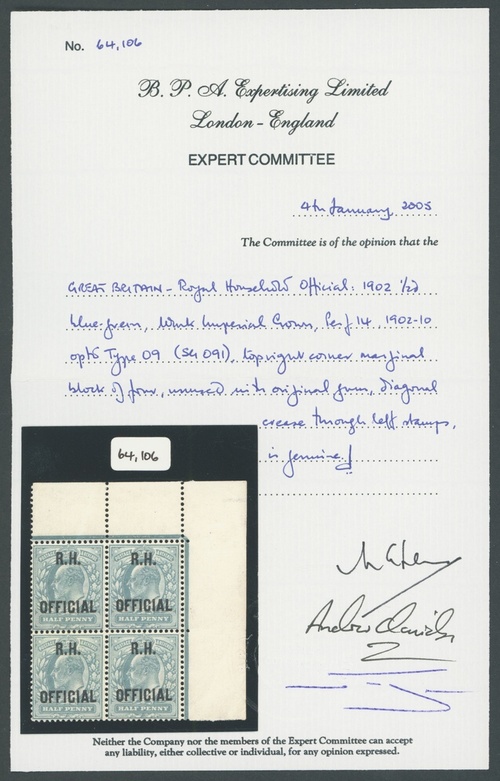 No. 64,106
B. P. A. Expertising Limited
London - England
EXPERT COMMITTEE
4th January 2005
The Committee is of the opinion that the
GREAT BRITAIN - Royal Household Official: 1902 ½d
blue-green, Wmk Imperial Crown, Perf 14, 1902-10
optd Type 09 (SG 091), top right corner marginal
block of four, unused with original gum, diagonal
crease through left stamps,
is genuine
64,106
R.H. R.H.
OFFICIAL OFFICIAL
HALF PENNY HALF PENNY
R.H. R.H.
OFFICIAL OFFICIAL
HALF PENNY HALF PENNY
Neither the Company nor the members of the Expert Committee can accept
any liability, either collective or individual, for any opinion expressed.